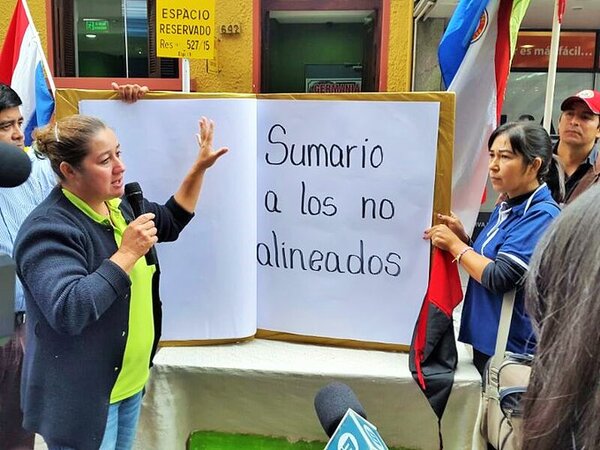 ESPACIO
RESERVADO
Res 527/15
642
es más fácil...
GERMANIA
Sumario
a los no
alineados